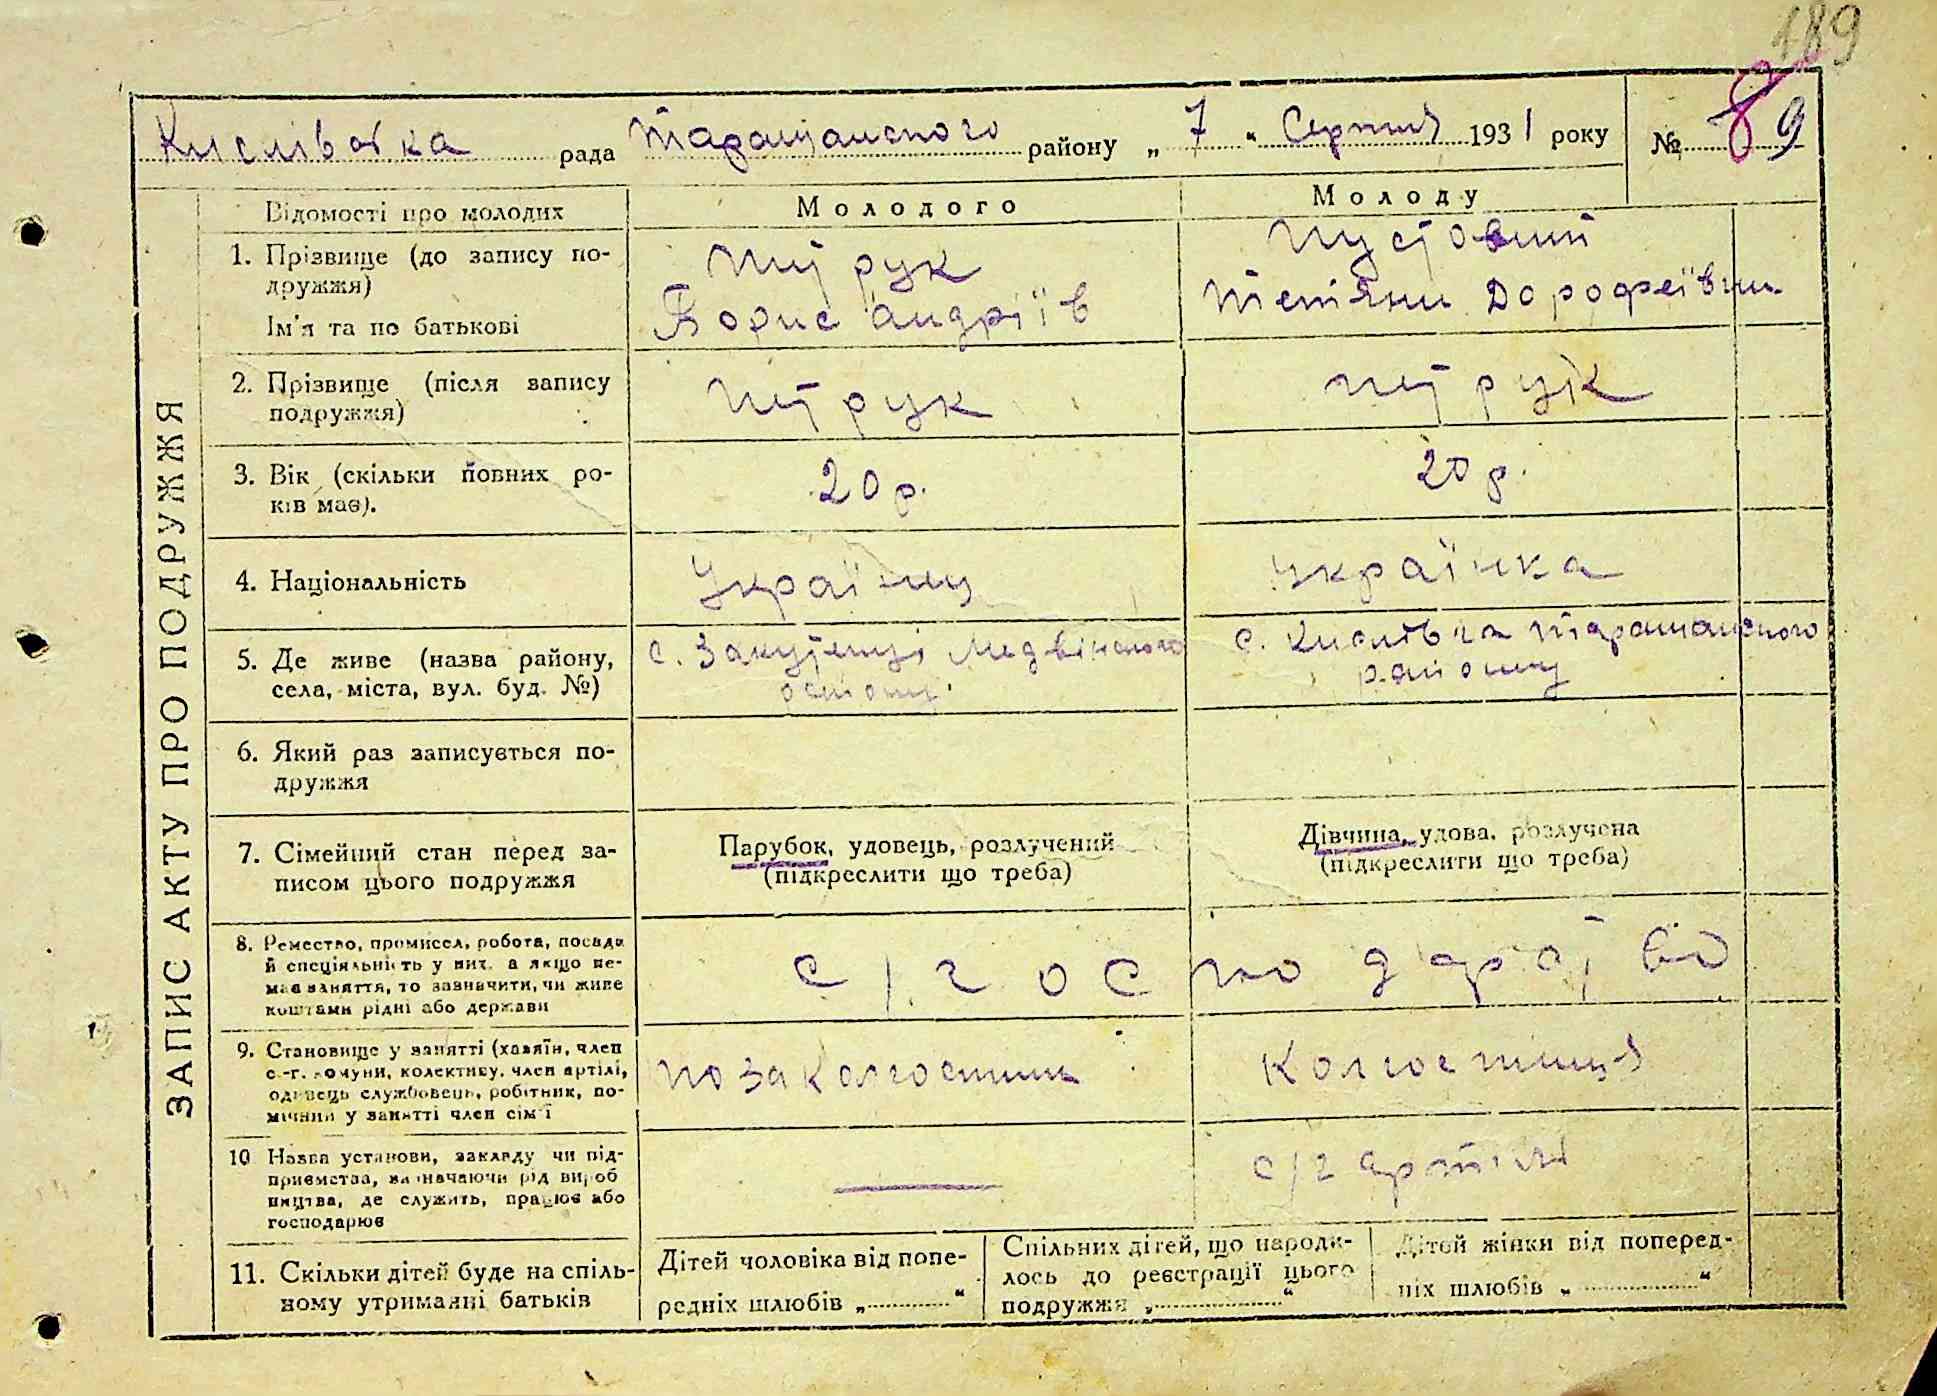 189
Кислівська рада Таращанського району „7" Серпня 1931 року № 89
ЗАПИС АКТУ ПРО ПОДРУЖЖЯ
Відомості про молодих
Молодого
Молоду
1. Прізвище (до запису по-
дружжя)
Ім'я та по батькові
Пітрук
Борис Андріїв
Пустовий
Тетяни Дорофеївни
2. Прізвище (після запису
подружжя)
Пітрук
Пітрук
3. Вік (скільки повних ро-
ків має).
20 р.
20 р.
4. Національність
Українец
Українка
5. Де живе (назва району,
села, міста, вул. буд. №)
с. Закутенці Медвінського
с. Кислівка Таращанського
району
6. Який раз записується по-
дружжя
7. Сімейний стан перед за-
писом цього подружжя
Парубок, удовець, розлучений
(підкреслити що треба)
Дівчина, удова, розлучена
(підкреслити що треба)
8. Ремество, промисел, робота, посада
й спеціяльність у них, а якщо не-
має заняття, то зазначити, чи живе
коштами рідні або держави
с/господарство
9. Становище у занятті (хазяїн, член
с.-г. комуни, колективу, член артілі,
одинець службовець, робітник, по-
мічний у занятті член сім'ї
позаколгоспник
Колгоспниця
10 Назва установи, закладу чи під-
приємства, зазначаючи рід вироб
ництва, де служить, працює або
господарює
с/г артіль
11. Скільки дітей буде на спіль-
ному утриманні батьків
Дітей чоловіка від попе-
редніх шлюбів „ "
Спільних дітей, що народи-
лось до реєстрації цього
подружжя „ "
Дітей жінки від поперед-
ніх шлюбів „ "